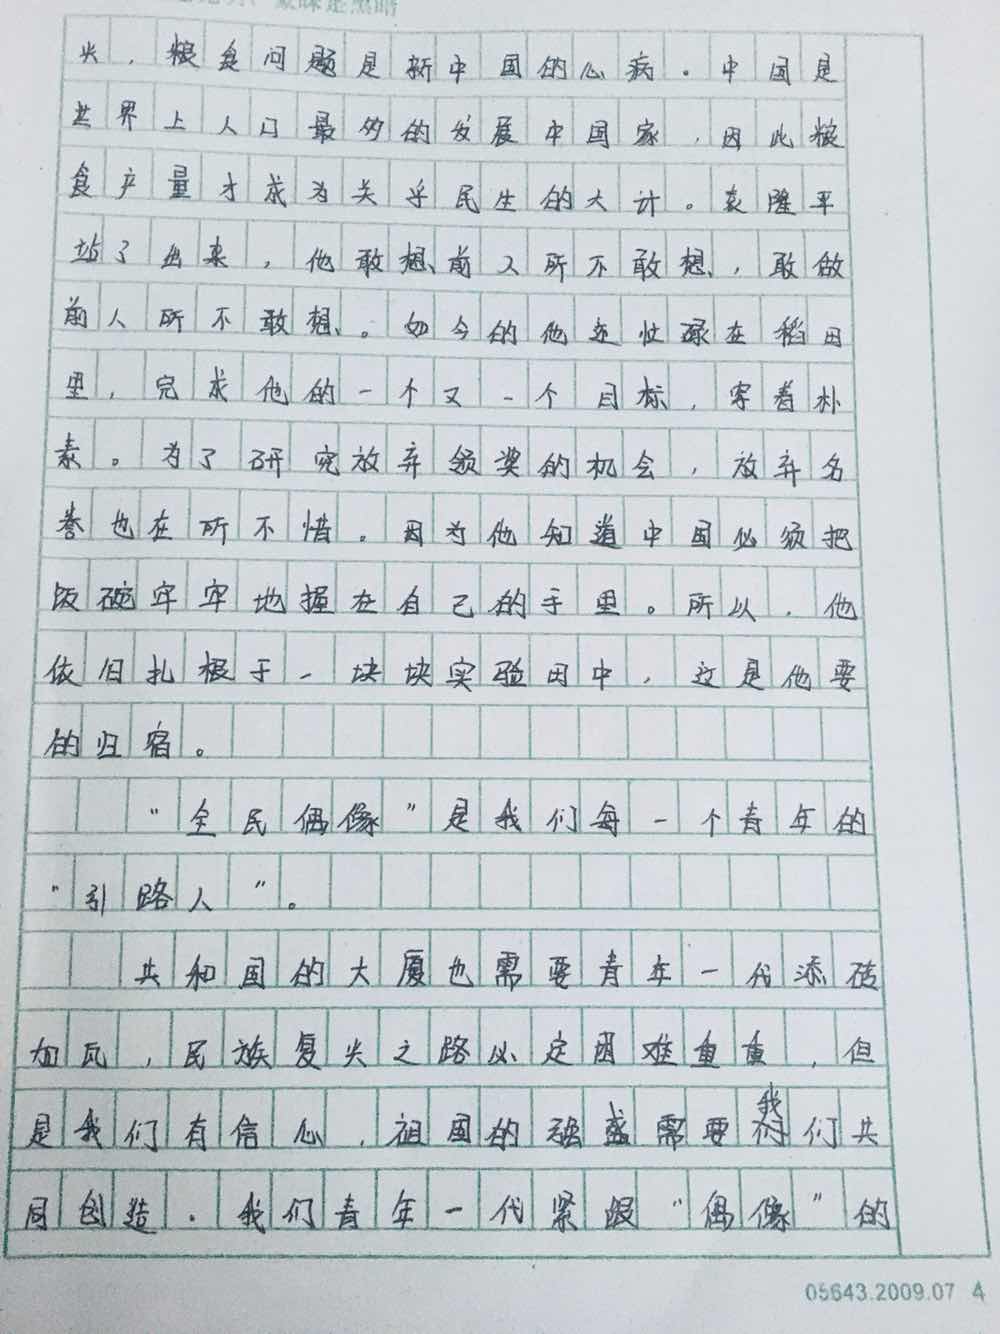 头，粮食问题是新中国的心病。中国是
世界上人口最多的发展中国家，因此粮
食产量才成为关乎民生的大计。袁隆平
站了出来，他敢想前人所不敢想，敢做
前人所不敢想。如今的他还忙碌在稻田
里，完成他的一个又一个目标，穿着朴
素。为了研究放弃领奖的机会，放弃名
誉也在所不惜。因为他知道中国必须把
饭碗牢牢地握在自己的手里。所以，他
依旧扎根于一块块实验田中，这是他要
的归宿。
“全民偶像”是我们每一个青年的
“引路人”。
共和国的大厦也需要青年一代添砖
加瓦，民族复兴之路必定困难重重，但
是我们有信心，祖国的强盛需要我们共
同创造。我们青年一代紧跟“偶像”的
05643.2009.07 4